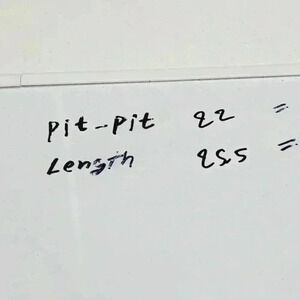 Pit-Pit 22 =
Length 25,5 =